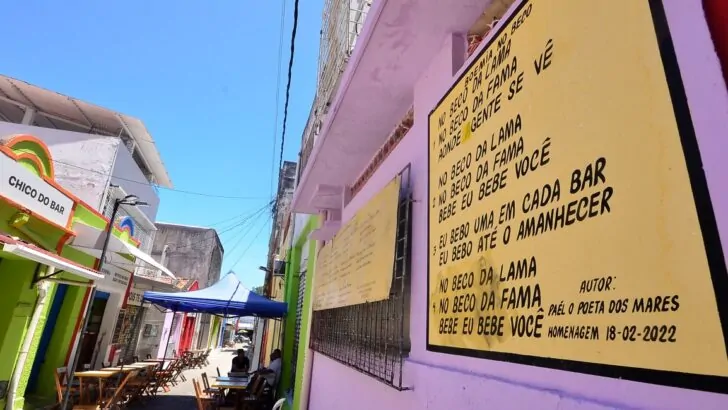 CHICO DO BAR
BOEMIA NO BECO
NO BECO DA LAMA
1 NO BECO DA FAMA
AONDE A GENTE SE VÊ
NO BECO DA LAMA
2 NO BECO DA FAMA
BEBE EU BEBE VOCÊ
3 EU BEBO UMA EM CADA BAR
EU BEBO ATÉ O AMANHECER
NO BECO DA LAMA
4 NO BECO DA FAMA
BEBE EU BEBE VOCÊ
AUTOR:
PAÉL O POETA DOS MARES
HOMENAGEM 18-02-2022